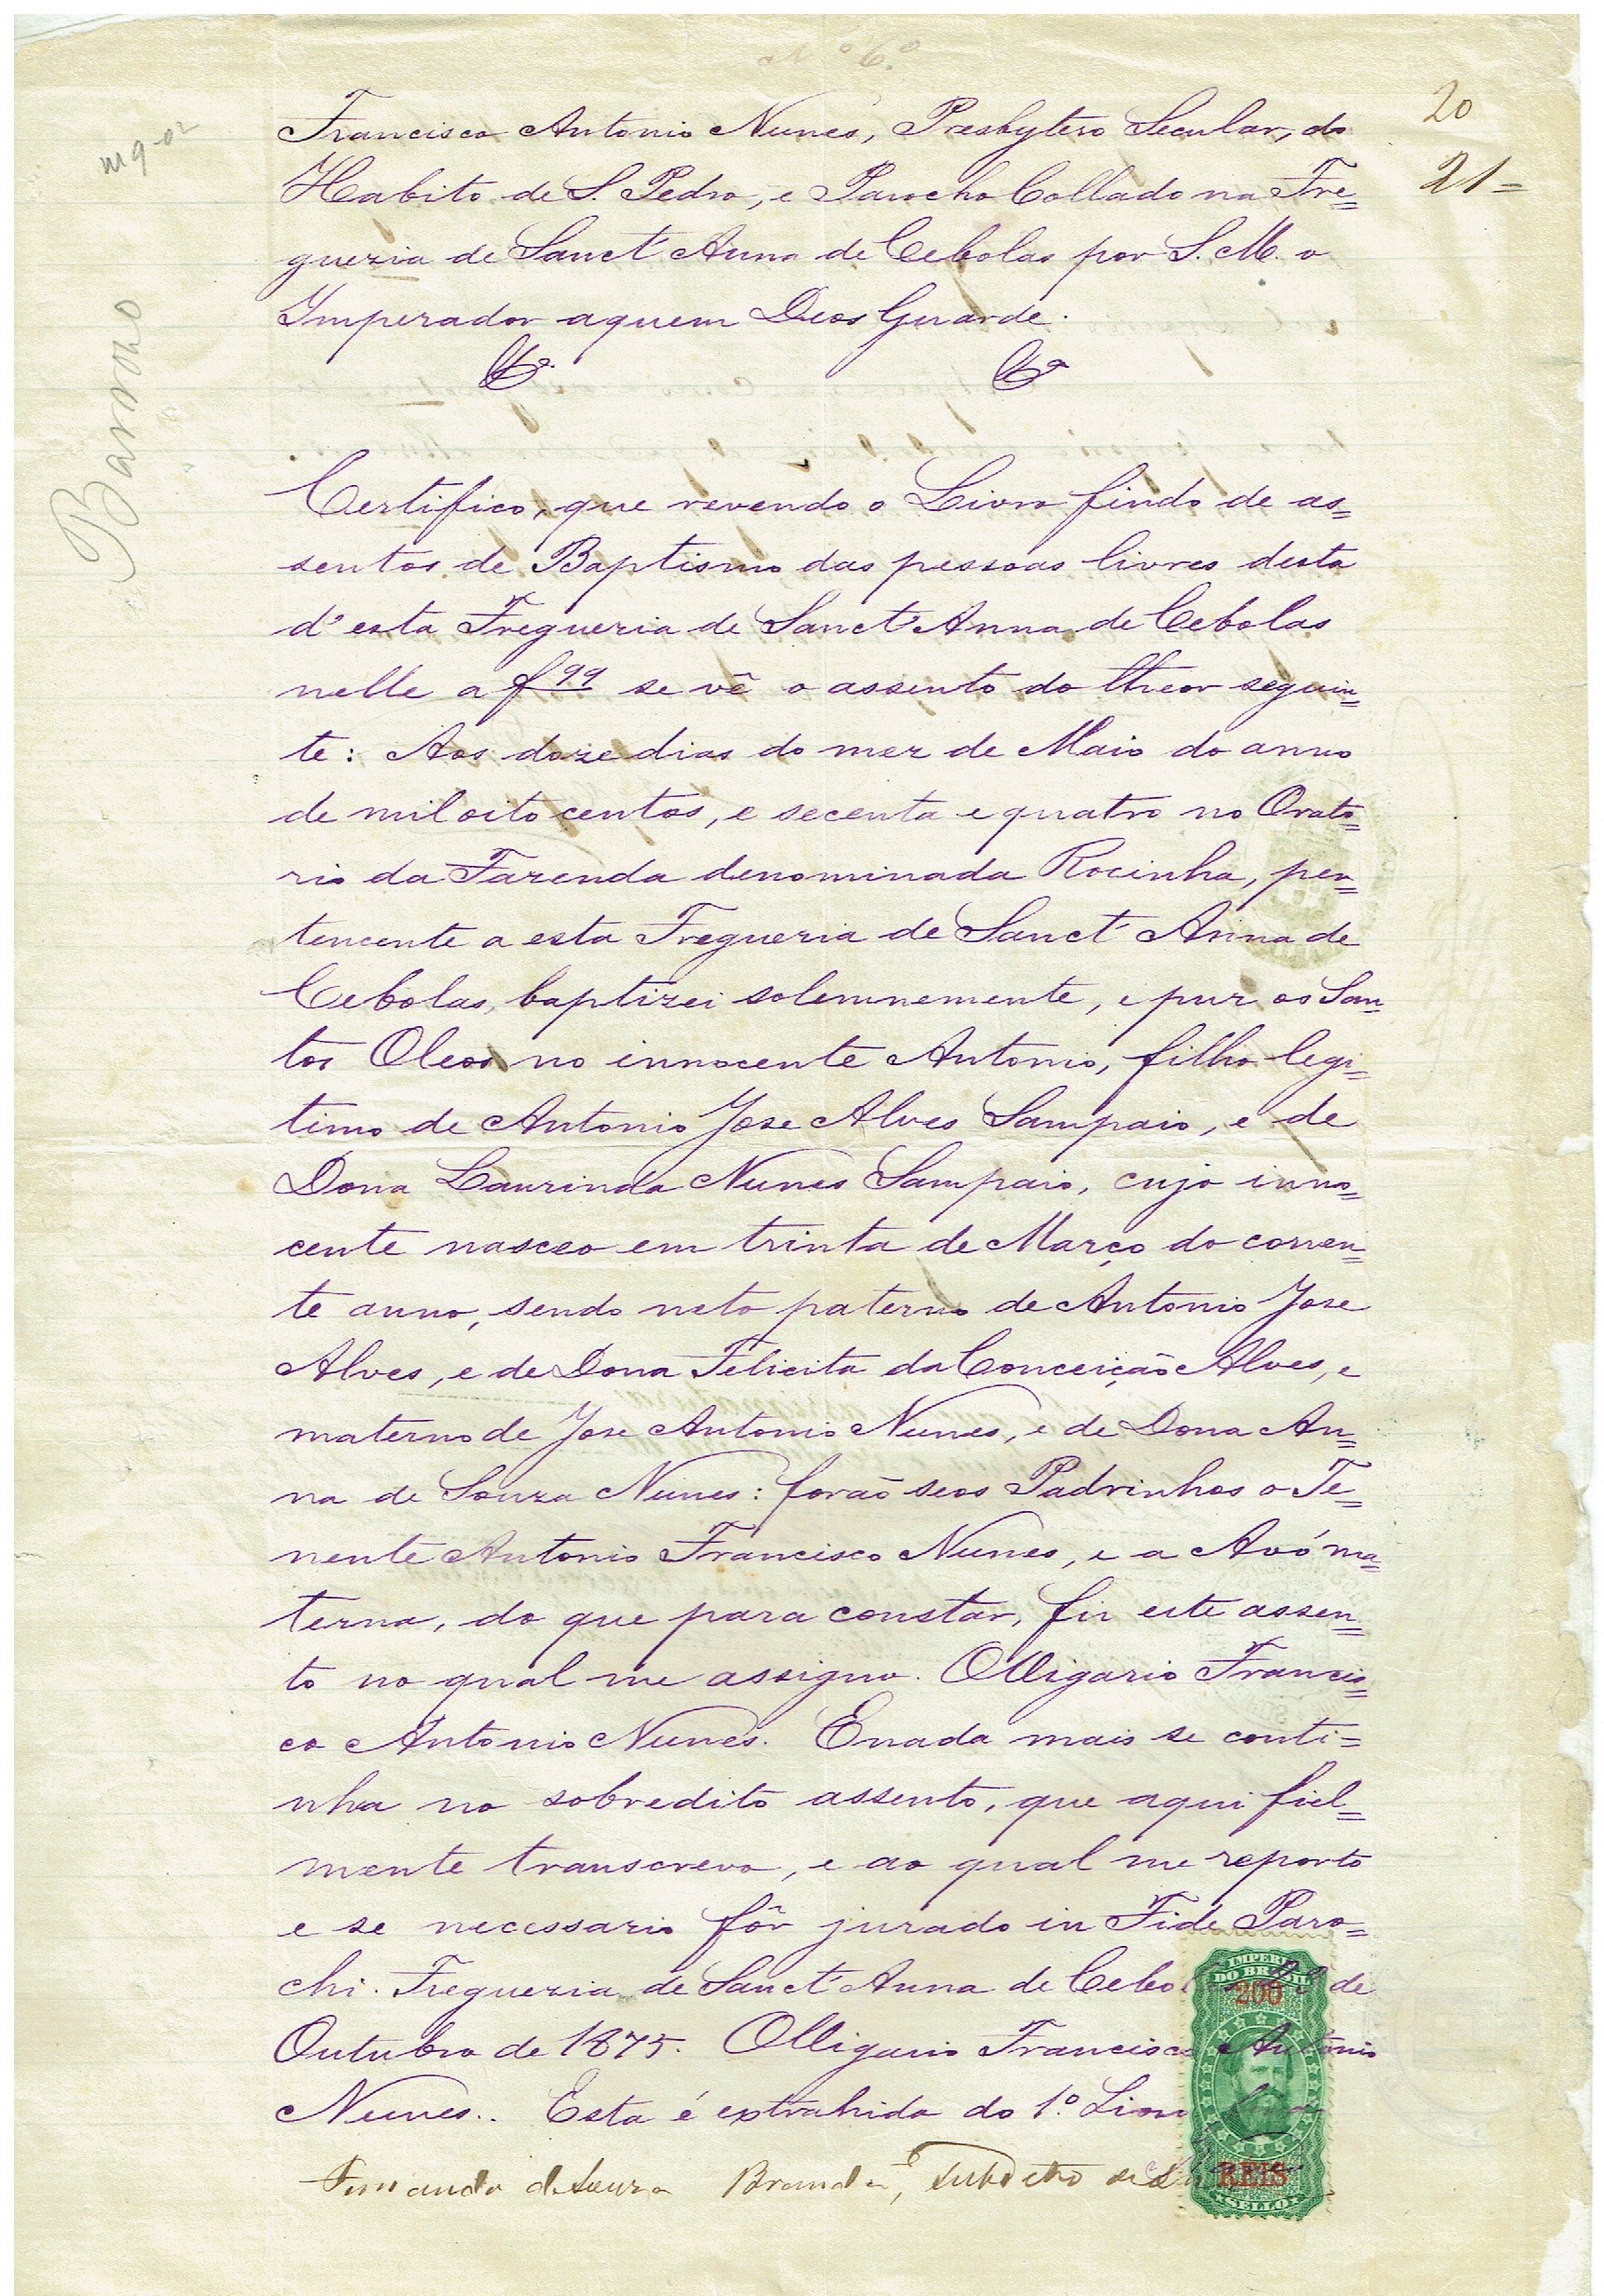 Nº 6º
20
21=
Francisco Antonio Nunes, Presbytero Secular, do
Habito de S. Pedro, e Parocho Collado na Fre=
guezia de Sanct'Anna de Cebolas por S. M. o
Imperador aquem Deos Guarde.
Certifico, que revendo o Livro findo de as=
sentos de Baptismo das pessoas livres desta
d'esta Freguezia de Sanct'Anna de Cebolas
nelle a f 99 se vê o assento do theor seguin=
te: Aos doze dias do mez de Maio do anno
de mil oito centos, e secenta e quatro no Orato=
rio da Fazenda denominada Rocinha, per=
tencente a esta Freguezia de Sanct'Anna de
Cebolas, baptizei solemnemente, e puz os San=
tos Oleos no innocente Antonio, filho legi=
timo de Antonio Jose Alves Sampaio, e de
Dona Laurinda Nunes Sampaio, cujo inno=
cente nasceo em trinta de Março do corren=
te anno, sendo neto paterno de Antonio Jose
Alves, e de Dona Felicita da Conceição Alves, e
materno de Jose Antonio Nunes, e de Dona An=
na de Souza Nunes: forão seos Padrinhos o Te=
nente Antonio Francisco Nunes, e a Avó ma=
terna, do que para constar, fiz este assen=
to no qual me assigno. Olligario Francis=
co Antonio Nunes. E nada mais se conti=
nha no sobredito assento, que aqui fiel=
mente transcrevo, e ao qual me reporto
e se necessario fôr jurado in Fide Paro=
chi. Freguezia de Sanct'Anna de Cebo de
Outubro de 1875. Olligario Francisco Antonio
Nunes.. Esta é extrahida do 1º Livro
Fernando de Souza Brandão,
Barroso
IMPERIO
DO BRAZIL
200
REIS
SELLO